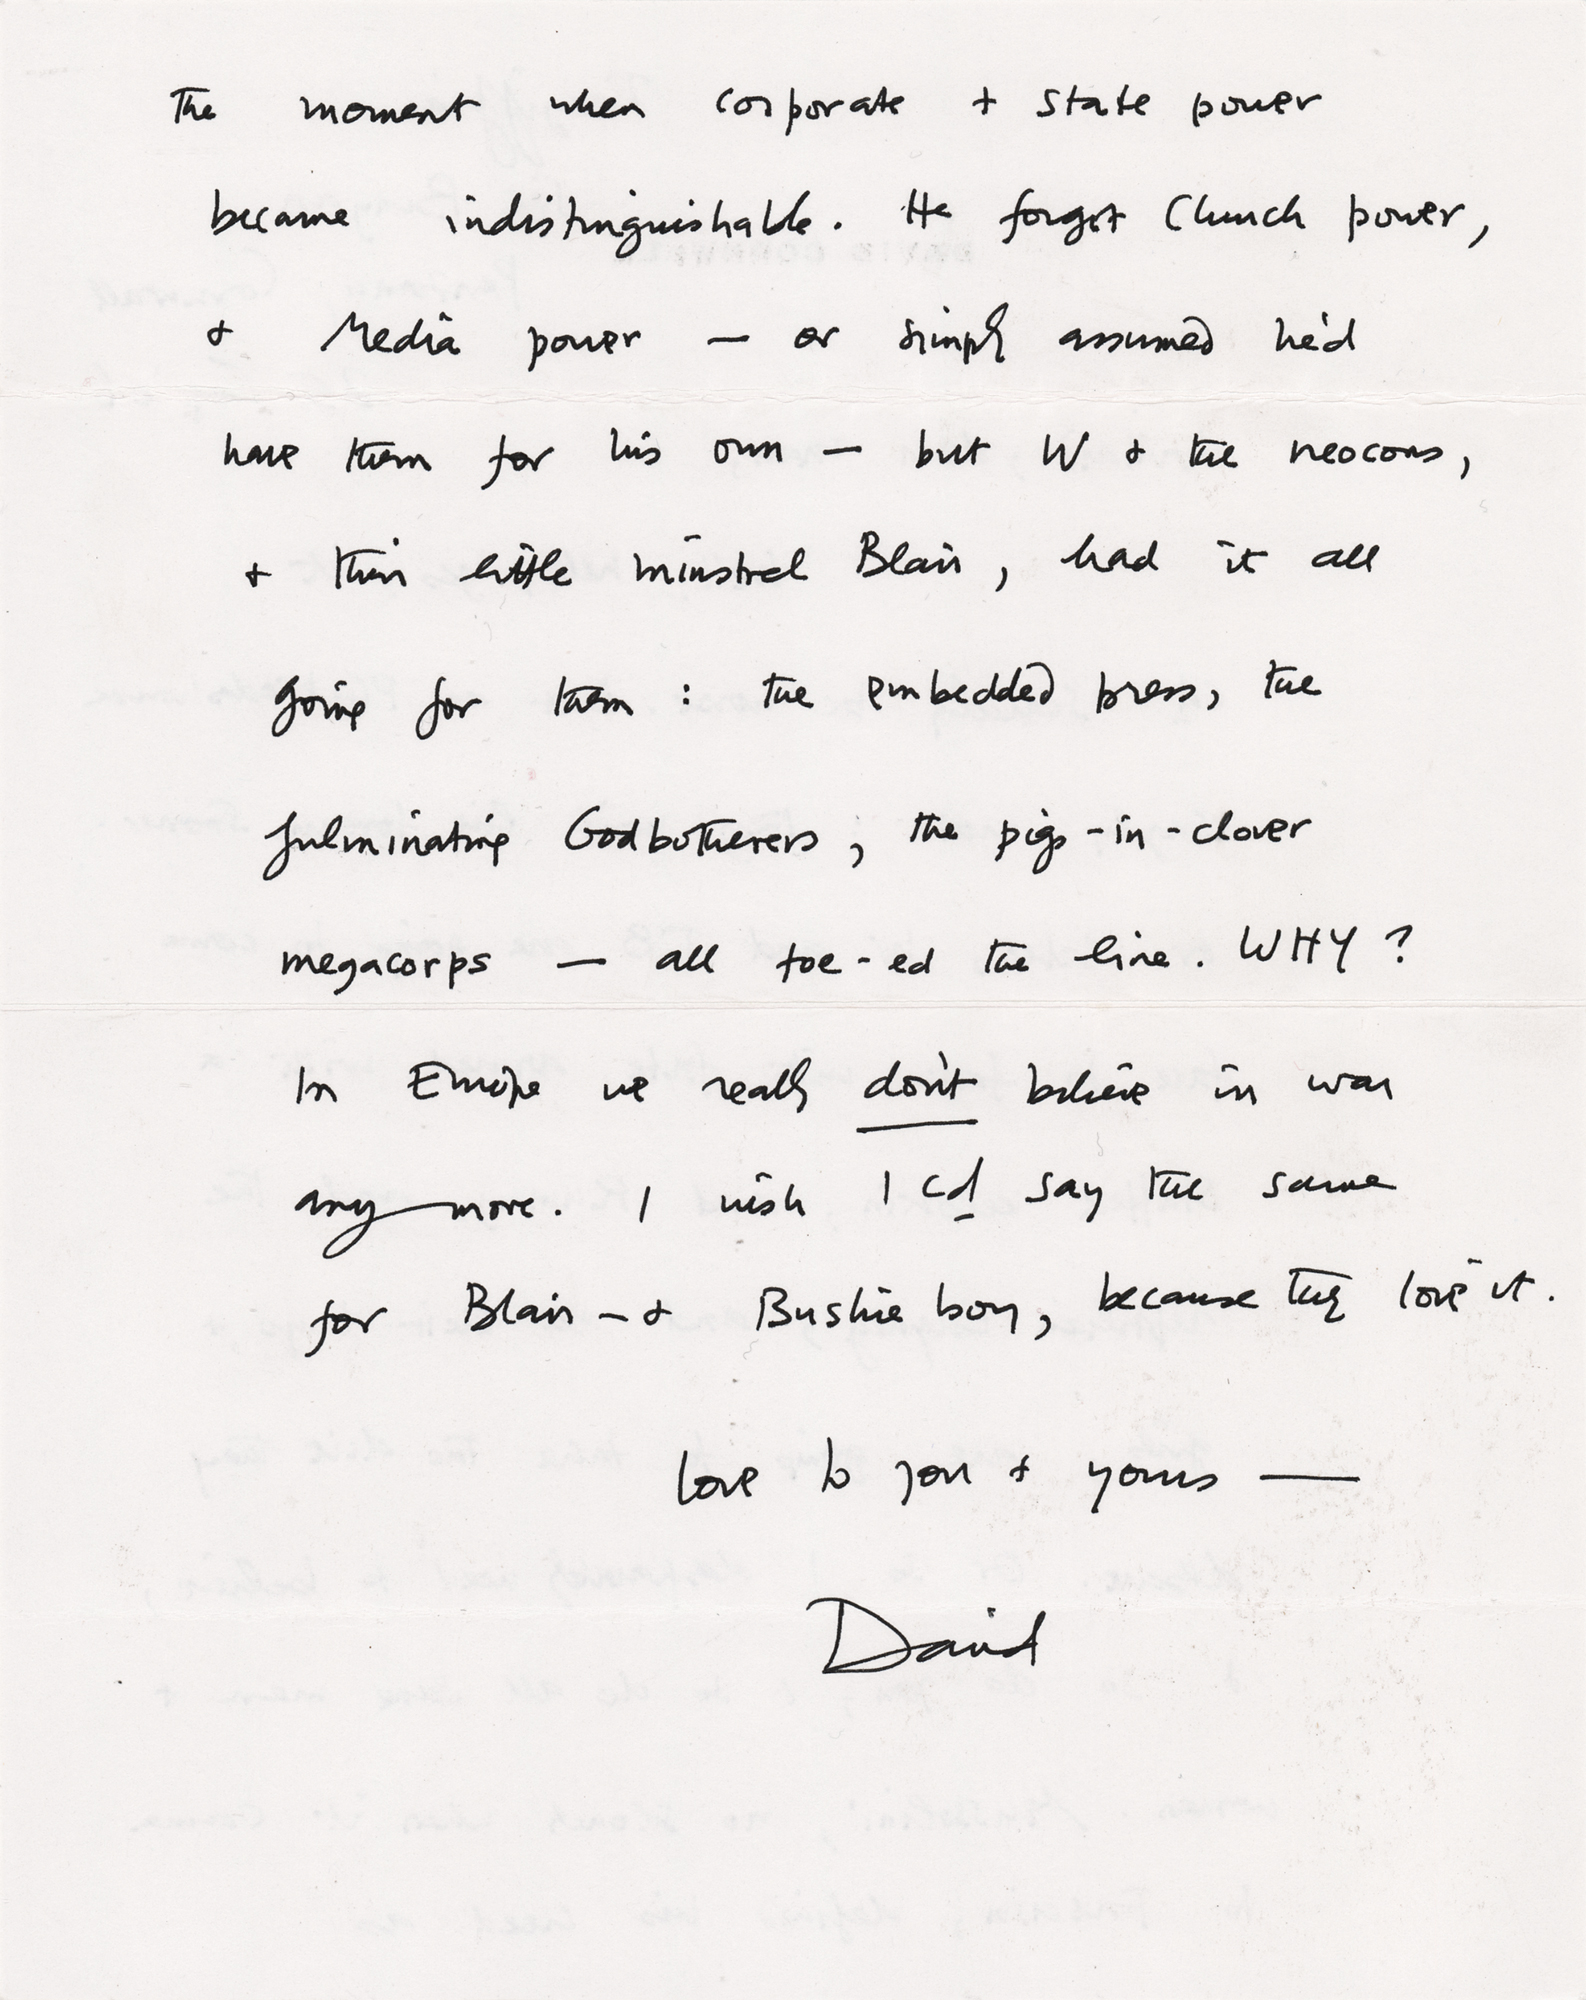 The moment when corporate + state power
became indistinguishable. He forgot Church power,
+ Media power — or simply assumed he'd
have them for his own — but W + the neocons,
+ their little minstrel Blair, had it all
going for them : the embedded press, the
fulminating Godbotherers, the pigs-in-clover
megacorps — all toe-ed the line. WHY ?
In Europe we really don't believe in war
any more. I wish I cd say the same
for Blair - + Bushie boy, because they love it.
love to you + yours —
David